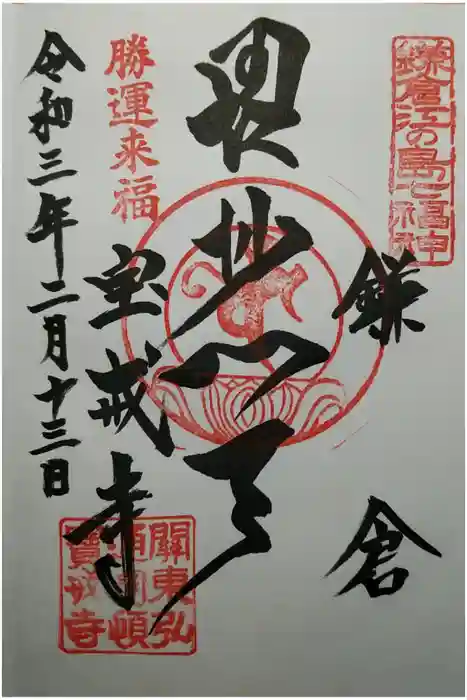 鎌倉江の島七福神
鎌倉
毘沙門天
勝運来福
宝戒寺
令和三年二月十三日
關東弘
通圓頓
寶戒寺